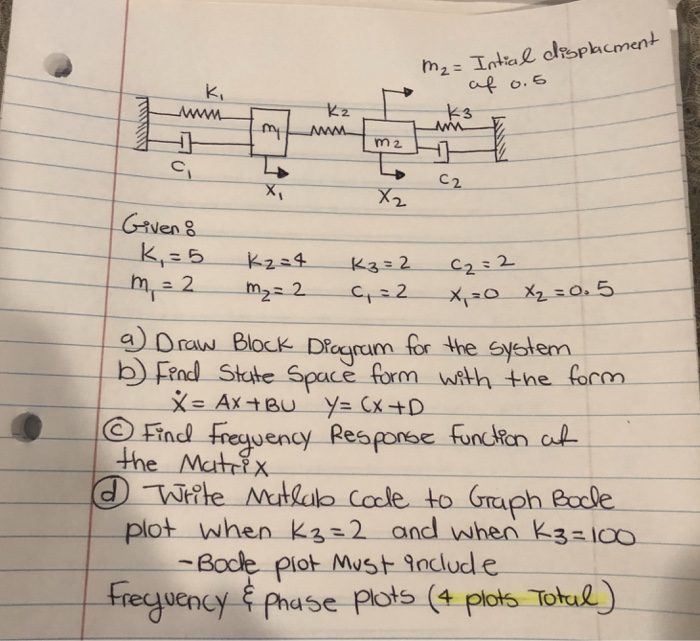 m₂ = Intial displacment
of 0.5
K₁
K₂
K3
m₁
m2
C₁
C₂
X₁
X₂
Given:
K₁=5 K₂=4 K3=2 C₂=2
m₁=2 m₂=2 C₁=2 X₁=0 X₂=0.5
a) Draw Block Diagram for the system
b) Find State Space form with the form
Ẋ = AX+BU Y= CX+D
c) Find Frequency Response Function of
the Matrix
d) Write Matlab Code to Graph Bode
plot when K3=2 and when K3=100
- Bode plot Must include
Frequency & phase plots (4 plots Total)